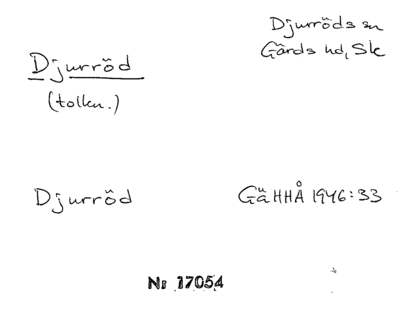 Djurröds sn
Gärds hd, Sk
Djurröd
(tolkn.)
Djurröd GäHHÅ 1946:33
Nr 17054